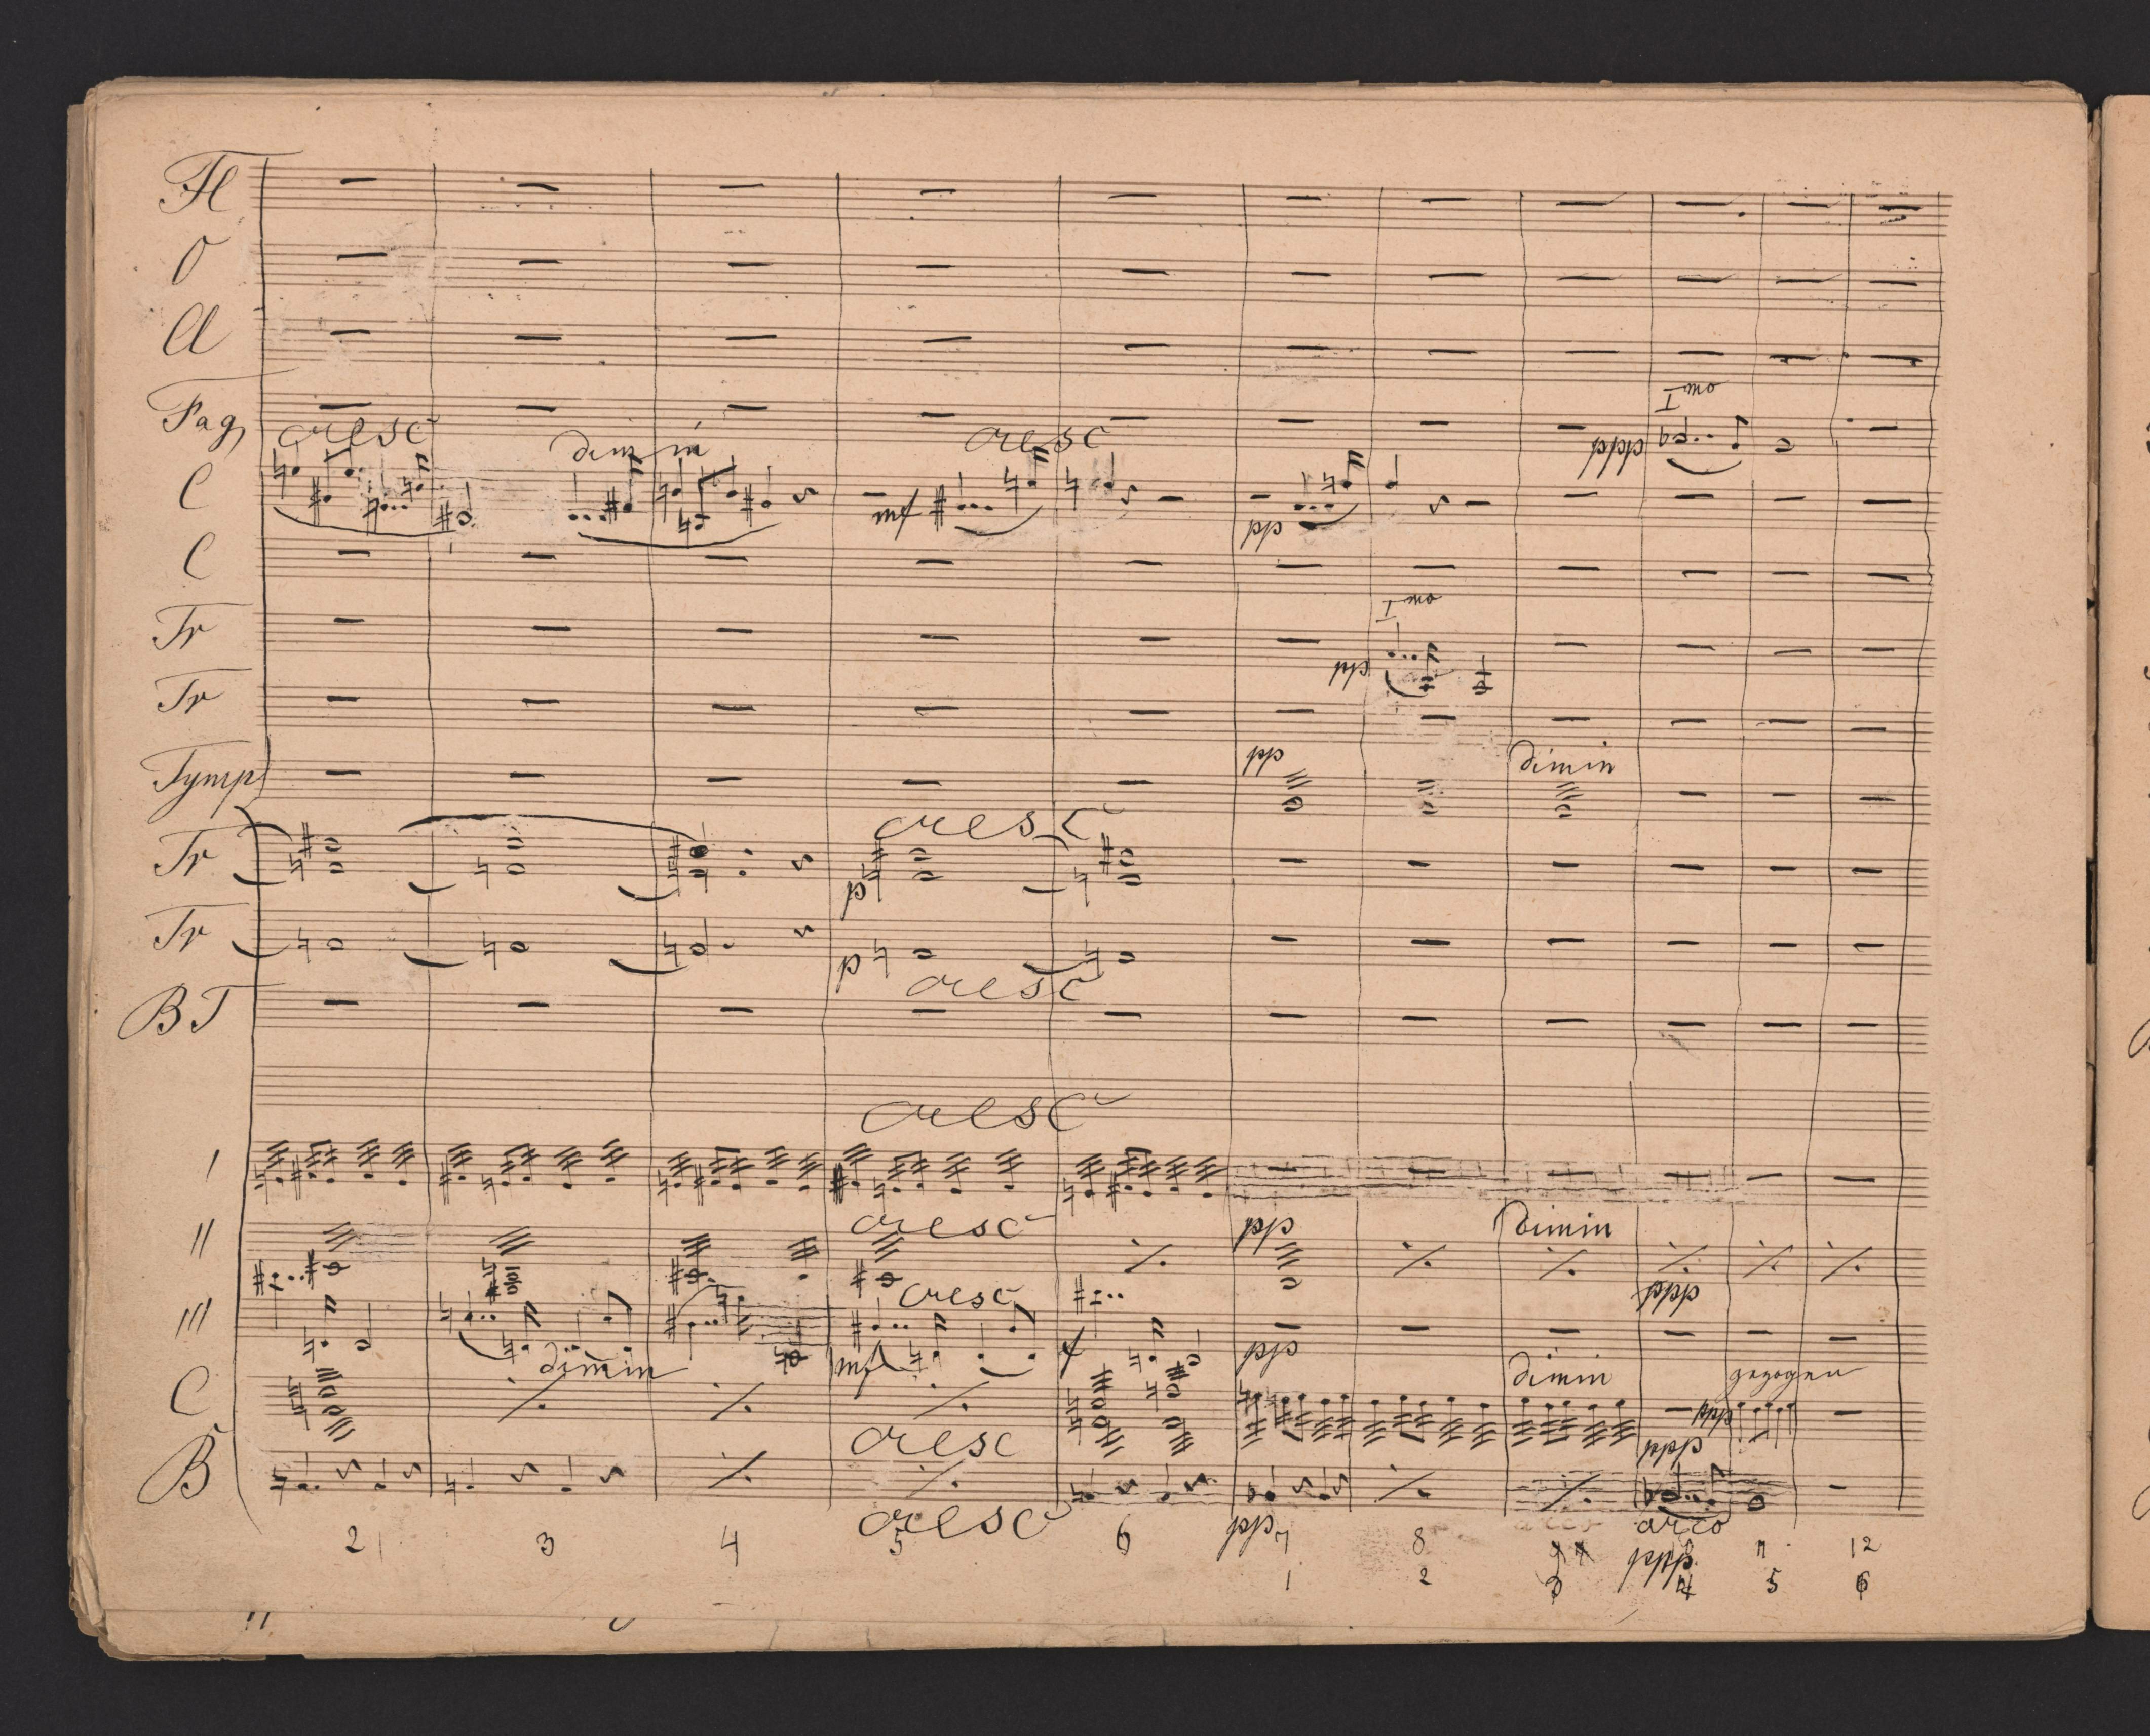 Fl
O
Cl
Imo
Fag
ppp
cresc
dimin
cresc
C
mf
pp
C
Imo
Tr
pp
Tr
pp
dimin
Tymp
cresc
Tr
p
Tr
p
cresc
BT
cresc
I
cresc
pp
Dimin
II
cresc
ppp
III
dimin
mf
f
pp
dimin
gezogen
C
ppp
cresc
ppp
B
cresc
pp
arco
2 3 4 5 6 7 8 11 12
ppp
1 2 3 4 5 6